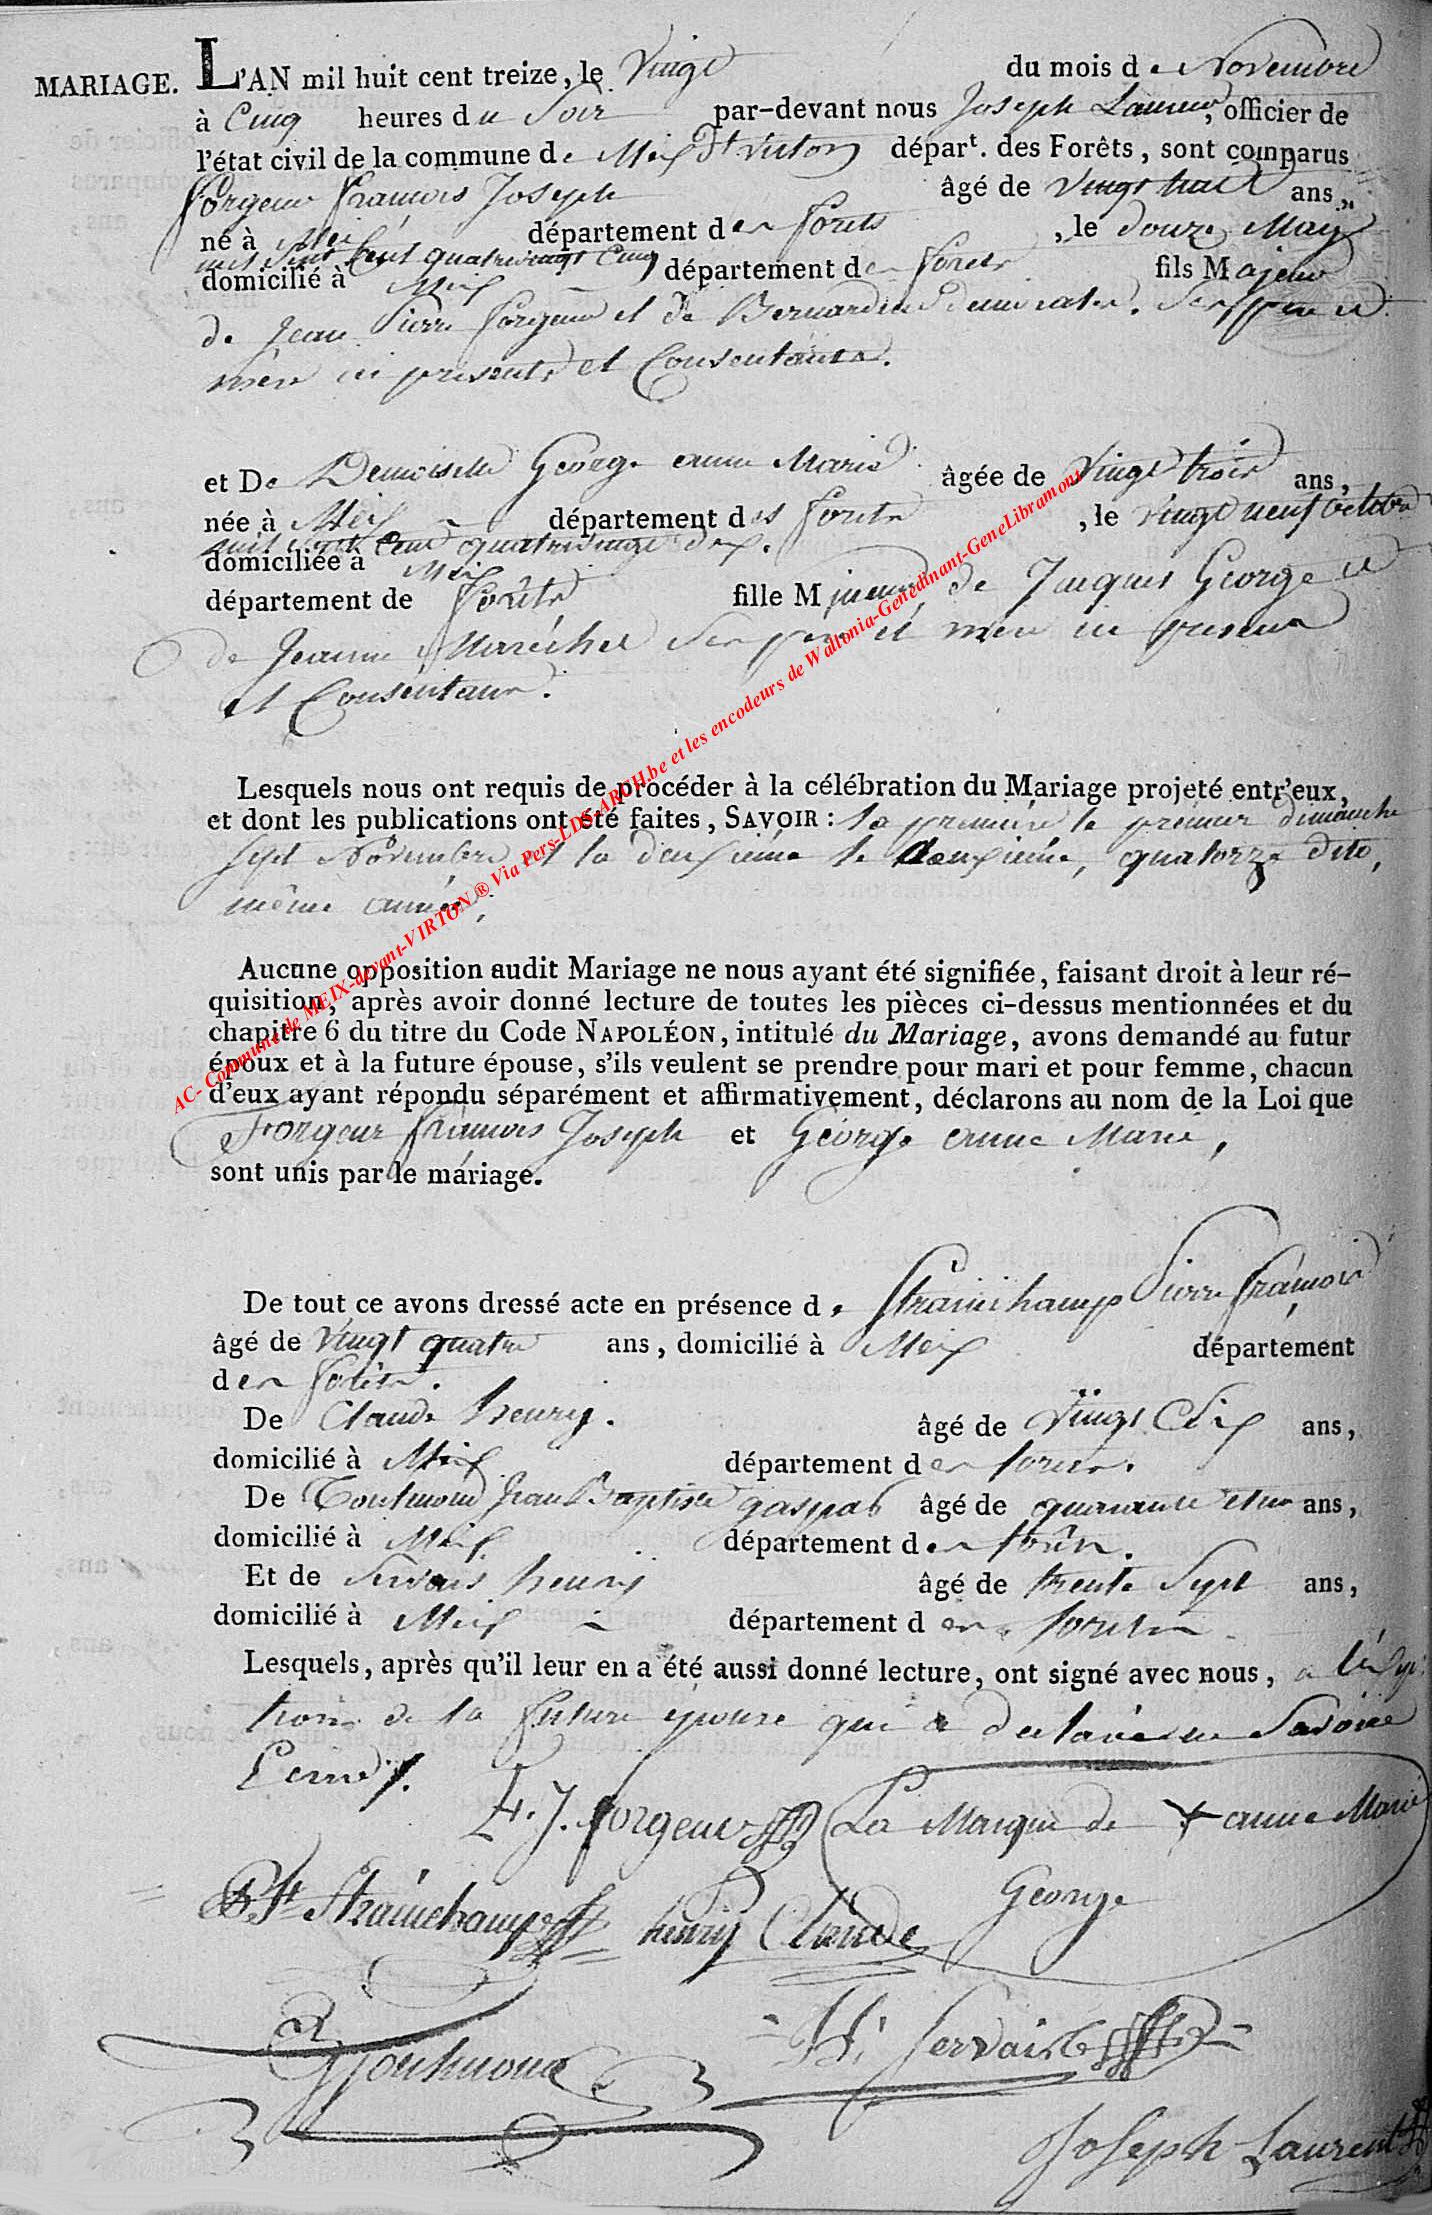 MARIAGE. L'AN mil huit cent treize, le Vingt du mois de Novembre
à Cinq heures du Soir par-devant nous Joseph Laurent, officier de
l'état civil de la commune de Meix dt Virton départ. des Forêts, sont comparus
Forgeur François Joseph âgé de vingt huit ans,
né à Meix département des forêts, le douze May
mil sept cent quatrevingt Cinq
domicilié à Meix département des forêts fils Majeur
de Jean Pierre forgeur et de Bernardine ses père et
mère ici présents et Consentants.
et De Demoiselle George anne Marie âgée de Vingt trois ans,
née à Meix département des forêts, le vingt neuf octobre
mil sept Cent quatrevingt dix.
domiciliée à Meix
département des forêts fille Majeure de Jacques George et
de Jeanne Maréchal Ses père et mère ici présents
et Consentans.
Lesquels nous ont requis de procéder à la célébration du Mariage projeté entr'eux,
et dont les publications ont été faites, SAVOIR : la première le premier dimanche
sept Novembre et la deuxième le deuxième, quatorze dito,
même année,
Aucune opposition audit Mariage ne nous ayant été signifiée, faisant droit à leur ré-
quisition, après avoir donné lecture de toutes les pièces ci-dessus mentionnées et du
chapitre 6 du titre du Code NAPOLÉON, intitulé du Mariage, avons demandé au futur
époux et à la future épouse, s'ils veulent se prendre pour mari et pour femme, chacun
d'eux ayant répondu séparément et affirmativement, déclarons au nom de la Loi que
Forgeur françois Joseph et George anne Marie,
sont unis par le máriage.
De tout ce avons dressé acte en présence de Strainchamps Pierre François
âgé de Vingt quatre ans, domicilié à Meix département
des forêts.
De Claude henry. âgé de Vingt Six ans,
domicilié à Meix département des forêts.
De Toutmond Jean Baptiste gaspar âgé de quarante et un ans,
domicilié à Meix département des forêts.
Et de Servais henry âgé de trente Sept ans,
domicilié à Meix département des forêts
Lesquels, après qu'il leur en a été aussi donné lecture, ont signé avec nous, a l'exép-
tion de la future epouse qui a declaré ne Savoire
Ecrire.
F. J. forgeur La Marque de + anne Marie
George
Strainchamps henry Claude
Toutmond H. Servais
Joseph Laurent
AC- Commune de MEIX-devant-VIRTON ® Via Pers-LDS-ARCH.be et les encodeurs de Wallonia-Genedinant-GeneLibramont